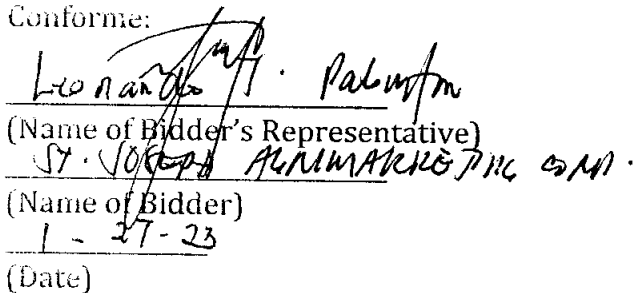 Conforme:
Leonardo
(Name of Bidder's Representative)
ST. JOSEPH AGRIMARKETING CORP.
(Name of Bidder)
1 - 27 - 23
(Date)